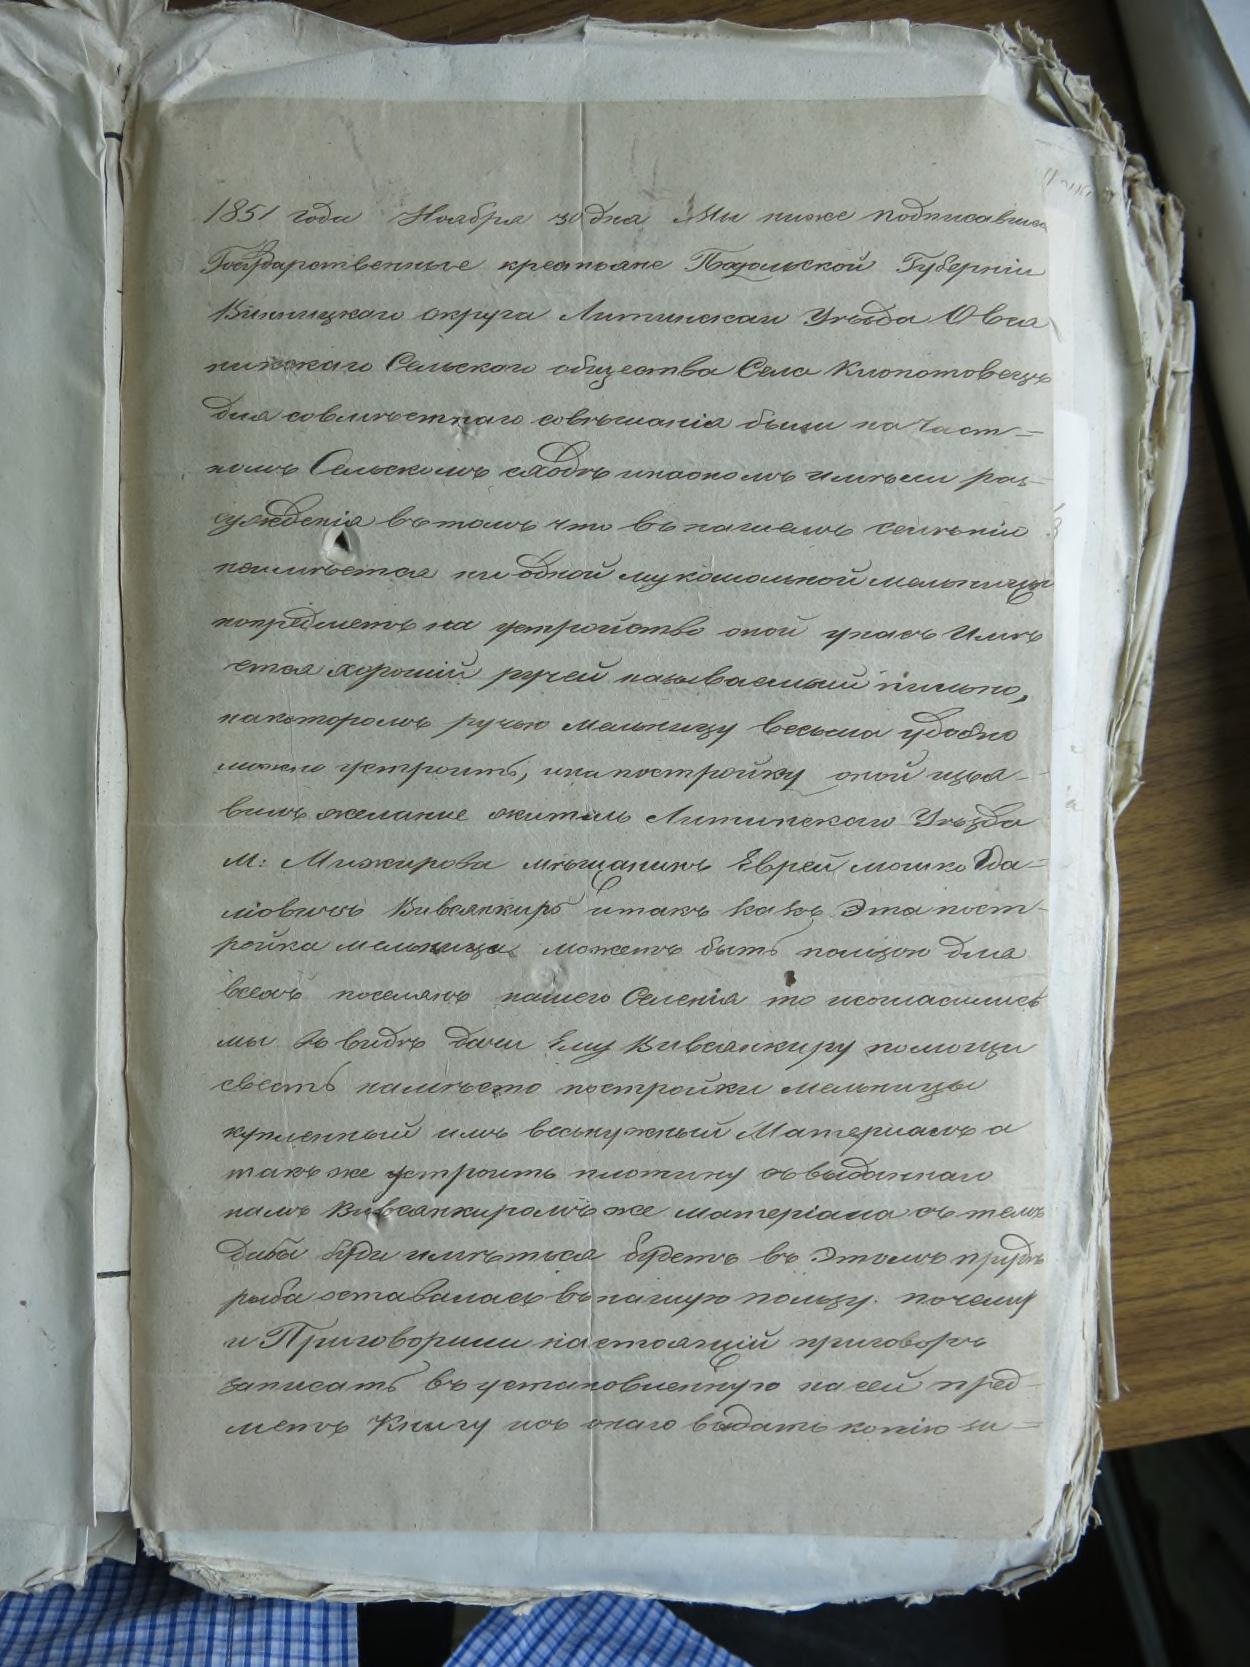 1851 года Ноября 30 дня Мы ниже подписавшиеся
Государственные крестьяне Подольской Губерніи
Винницкаго округа Литинскаго Уѣзда Овся
никскаго Сельскаго общества Села Клопотовецъ
для совмѣстнаго совѣщанія были на част=
номъ Сельскомъ сходѣ и на ономъ имѣли раз=
сужденія въ томъ что въ нашемъ селѣніи
неимѣется ни одной мукомольной мельницы
попредметъ на устройство оной у насъ имѣ
ется хорошій ручей называемый
на которомъ ручью мельницу весьма удобно
можно устроить, и на постройку оной изъя-
вилъ желание житель Литинскаго Уѣзда
М: Межирова мѣщанинъ Еврей Мошко
Вивсянкиръ и такъ какъ эта пост-
ройка мельницы можетъ быть пользою для
всехъ поселянъ нашего Селенія то и согласились
мы въ видѣ дачи Ему Вивсянкиру помощи
свесть на мѣсто постройки мельницы
купленный имъ весь нужный Материалъ а
такъ же устроить плотину съ выданнаго
намъ Вивсянкиромъ же матеріала съ темъ
дабы буди имѣться будетъ въ этомъ прудѣ
рыба оставалась въ нашую пользу. почему
и Приговорили настоящій приговоръ
записать въ установленную на сей пред-
метъ Книгу и съ онаго выдать копію за=